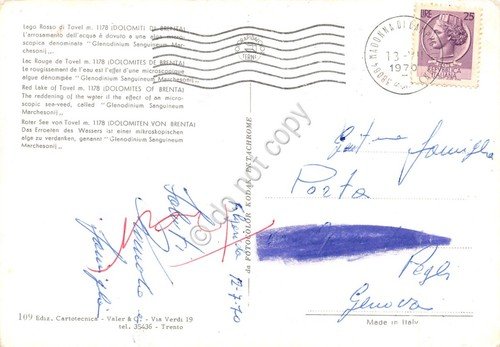 Lago Rosso di Tovel m. 1178 (DOLOMITI DE BRENTA)
L'arrossamento dell'acqua è dovuto a una alga micro-
scopica denominata "Glenodinium Sanguineum Mar-
chesonii"...
Lac Rouge de Tovel m. 1178 (DOLOMITES DE BRENTA)
Le rougissement de l'eau est l'effet d'une microscopique
algue dénomée "Glenodinium Sanguineum Marchesonii"...
Red Lake of Tovel m. 1178 (DOLOMITES OF BRENTA)
The reddening of the water is the effect of an micro-
scopic sea-weed, called "Glenodinium Sanguineum
Marchesonii"...
Roter See von Tovel m. 1178 (DOLOMITEN VON BRENTA)
Das Erroeten des Wassers ist einer mikroskopischen
alge zu verdanken, genannt "Glenodinium Sanguineum
Marchesonii"...
LIRE 25
38084 MADONNA DI CA
1970
Gent.ma famiglia
Porta
Pegli
Genova
12-7-70
Saluti
famiglia
da FOTOCOLOR KODAK EKTACHROME
© do not copy
109 Ediz. Cartotecnica - Valer & C. - Via Verdi 19
tel. 35436 - Trento
Made in Italy